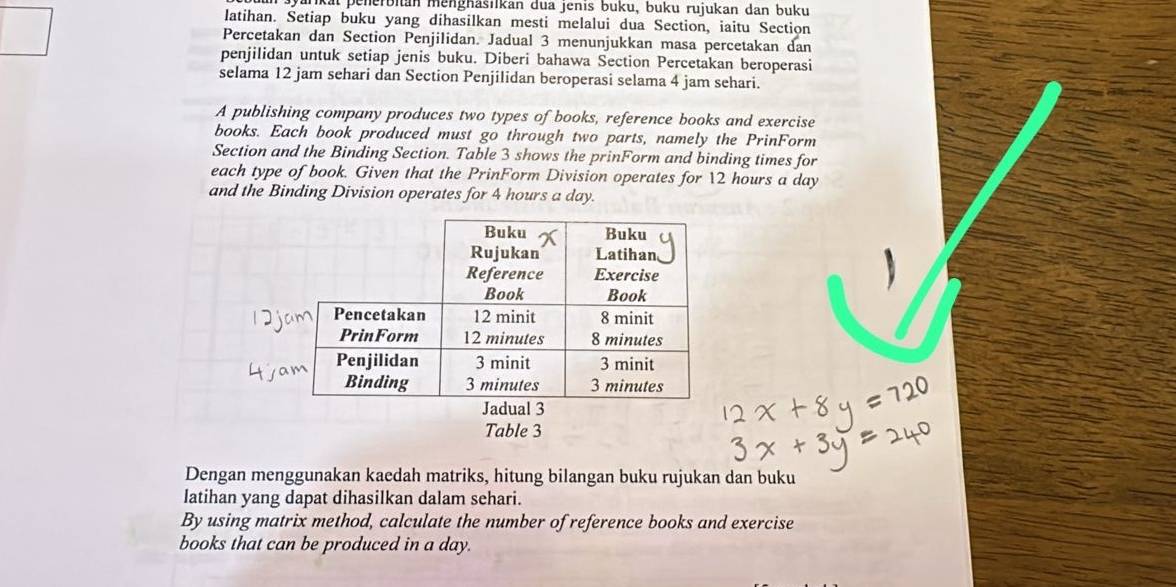 menghasilkan dua jenis buku, buku rujukan dan buku
latihan. Setiap buku yang dihasilkan mesti melalui dua Section, iaitu Section
Percetakan dan Section Penjilidan. Jadual 3 menunjukkan masa percetakan dan
penjilidan untuk setiap jenis buku. Diberi bahawa Section Percetakan beroperasi
selama 12 jam sehari dan Section Penjilidan beroperasi selama 4 jam sehari.
A publishing company produces two types of books, reference books and exercise
books. Each book produced must go through two parts, namely the PrinForm
Section and the Binding Section. Table 3 shows the prinForm and binding times for
each type of book. Given that the PrinForm Division operates for 12 hours a day
and the Binding Division operates for 4 hours a day.
Buku x Buku y
Rujukan Latihan
Reference Exercise
Book Book
12 jam Pencetakan 12 minit 8 minit
PrinForm 12 minutes 8 minutes
4 jam Penjilidan 3 minit 3 minit
Binding 3 minutes 3 minutes
Jadual 3
Table 3
12x + 8y = 720
3x + 3y = 240
Dengan menggunakan kaedah matriks, hitung bilangan buku rujukan dan buku
latihan yang dapat dihasilkan dalam sehari.
By using matrix method, calculate the number of reference books and exercise
books that can be produced in a day.